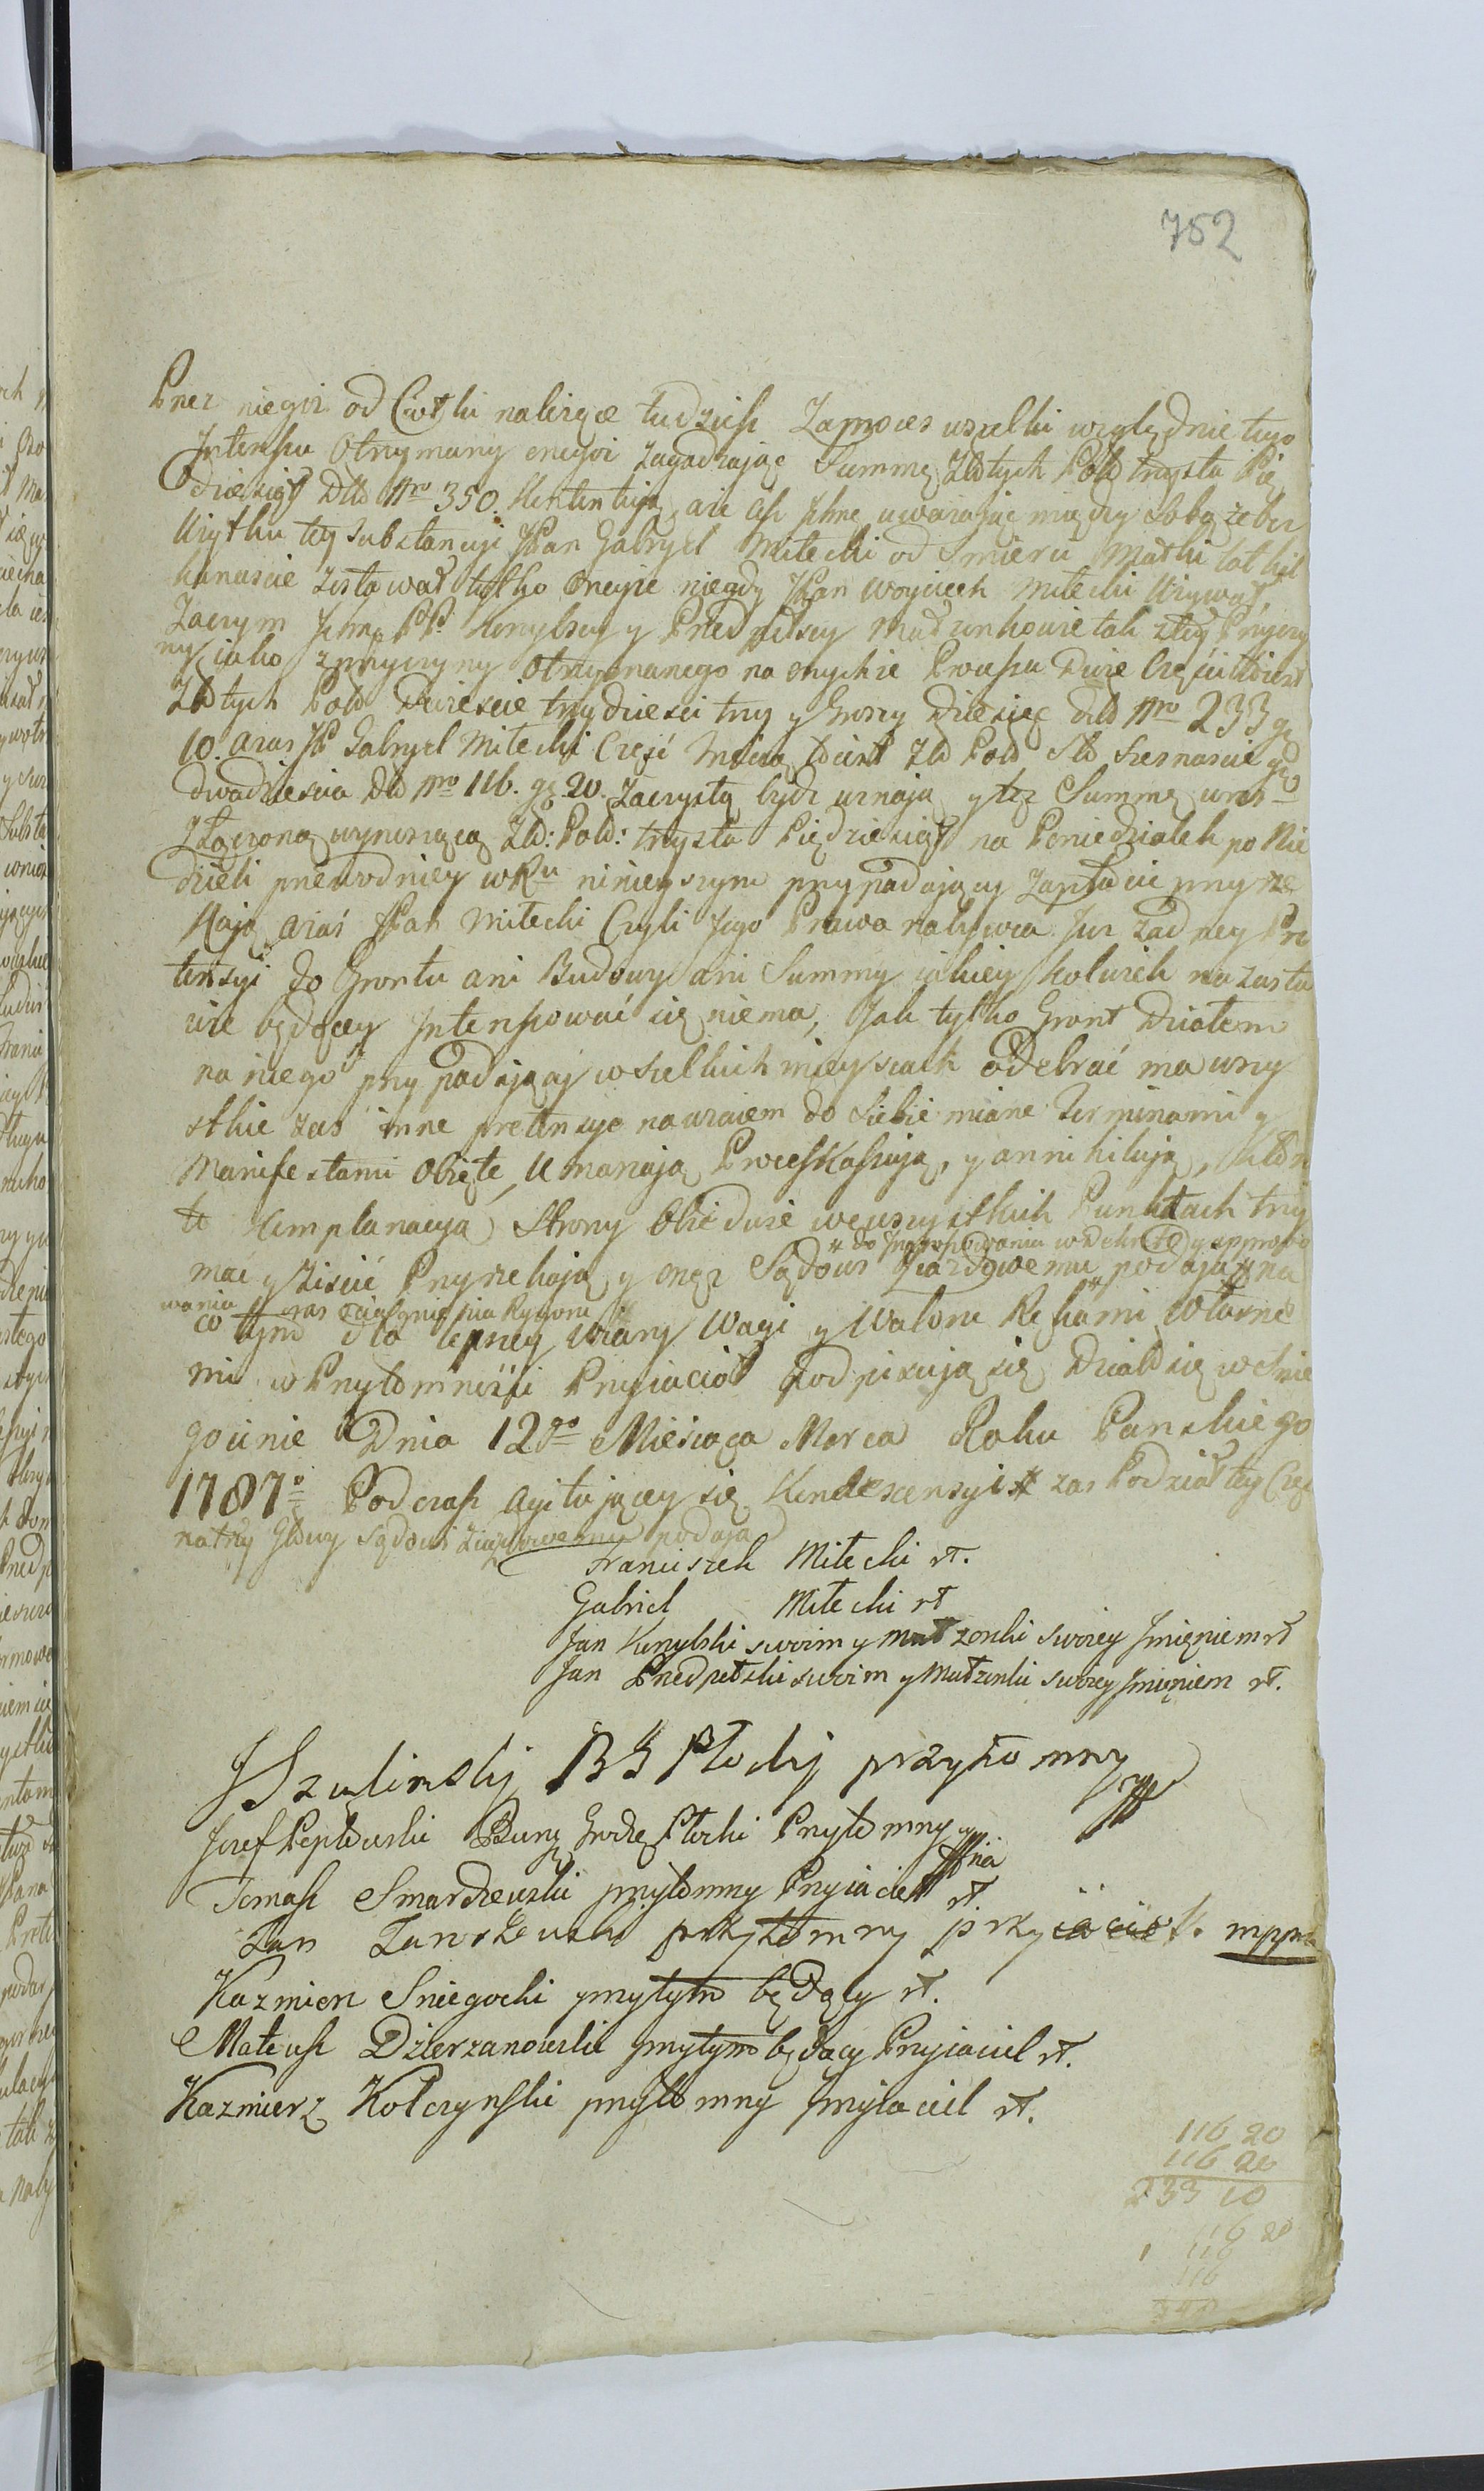 752
Przez niegoż od Cwłki należące tudziesz Zaproces wszelki względnie tego
Interessu Otrzymany onegoż zagadzając Summę Złłtych Polð trzysta Pię
dziesiąt Dłð Nro 350. Kontentują, aże asz Ichmć uwarając między Sobą że bez
Użytku tey Substancyi JPan Gabryel Miłecki od Smierci Matki lat kil
kanascie zostawał tylko oneyże niegdy JPan Woyciech Miłecki Używał,
Zaczym Ichmć PP. Konylscy y Przedpełscy Małżonkowie tak z tey Przyczy
ny iako z przyczyny Otrzymanego na onychże Processu Dwie Części
Złłtych Polð Dwiescie trzydziesci trzy y Groszy Dziesięć dłð Nro 233 gr
10. a zas JP Gabryel Miłecki Część Złð Polð Stð szesnascie gro
dwadziescia Dłð Nro 116. gr. 20. Za czystą bydz uznają y też Summę wraz
Złączoną wynoszącą Złð: Polð: trzysta Pięcdziesiąt na Poniedziałek po Nie
dzieli przewodniey w Ru ninieyszym przypadający Zapłacić przyrze
kają azaś JPan Miłecki Czyli Jego Prawa nabywca Juz zadney Pre
tensyi do Grontu ani Budowy ani Summy iakiey kolwiek na zasta
wie będącey Interessować się niema, Jak tylko Gront Działem
na niego przypadający w szelkich mieyscach odebrać ma wszy
stkie zas inne pretensye nawzaiem do Siebie miane Terminami y
Manifestami Obięte, Umarzają Process Kassują, y annihilują, Któr
ą Komplanacyą Strony Obiedwie we wszystkich Punktach trzy
# do Jngrossowania w Dekretę y approbo
mać y Ziscić Przyrzekają y onęż Sądowi Ziazdowemu podają # na
wania
co tym dla lepszey Wiary Wagi y Waloru Rękami Własne
mi w Przytomności Przyiaciół podpisują się Działð się w Śnie
gocinie Dnia 12go Miesiąca Marca Roku Panskiego
1787o Podczasz agitującey się Kondescensyi # zas Podział tey Częś
na trzy Głowy Sądowi Ziazdowemu podają
Franciszek Miłecki rt.
Gabriel Miłecki rt
Jan Konylski swoim y Małzonki swoiey Jmięniem rt
Jan Przedpełski swoim y Małzonki swoiey Jmięniem rt.
JSzulinskj BG Płockj przytomny
Jozef Pepłowski Burg Grodz Płocki Przytomny
Tomasz Smardzewski przytomny Przyiaciel rt.
Jan przytomny przyiaciel. mppria
Kazmierz Sniegocki przytym będący rt.
Mateusz Dzierzanowski przytym będący Przyiaciel rt.
Kazmierz Kołczynski przytomny przyiaciel rt.
116 20
116 20
233 10
116 20
116
116